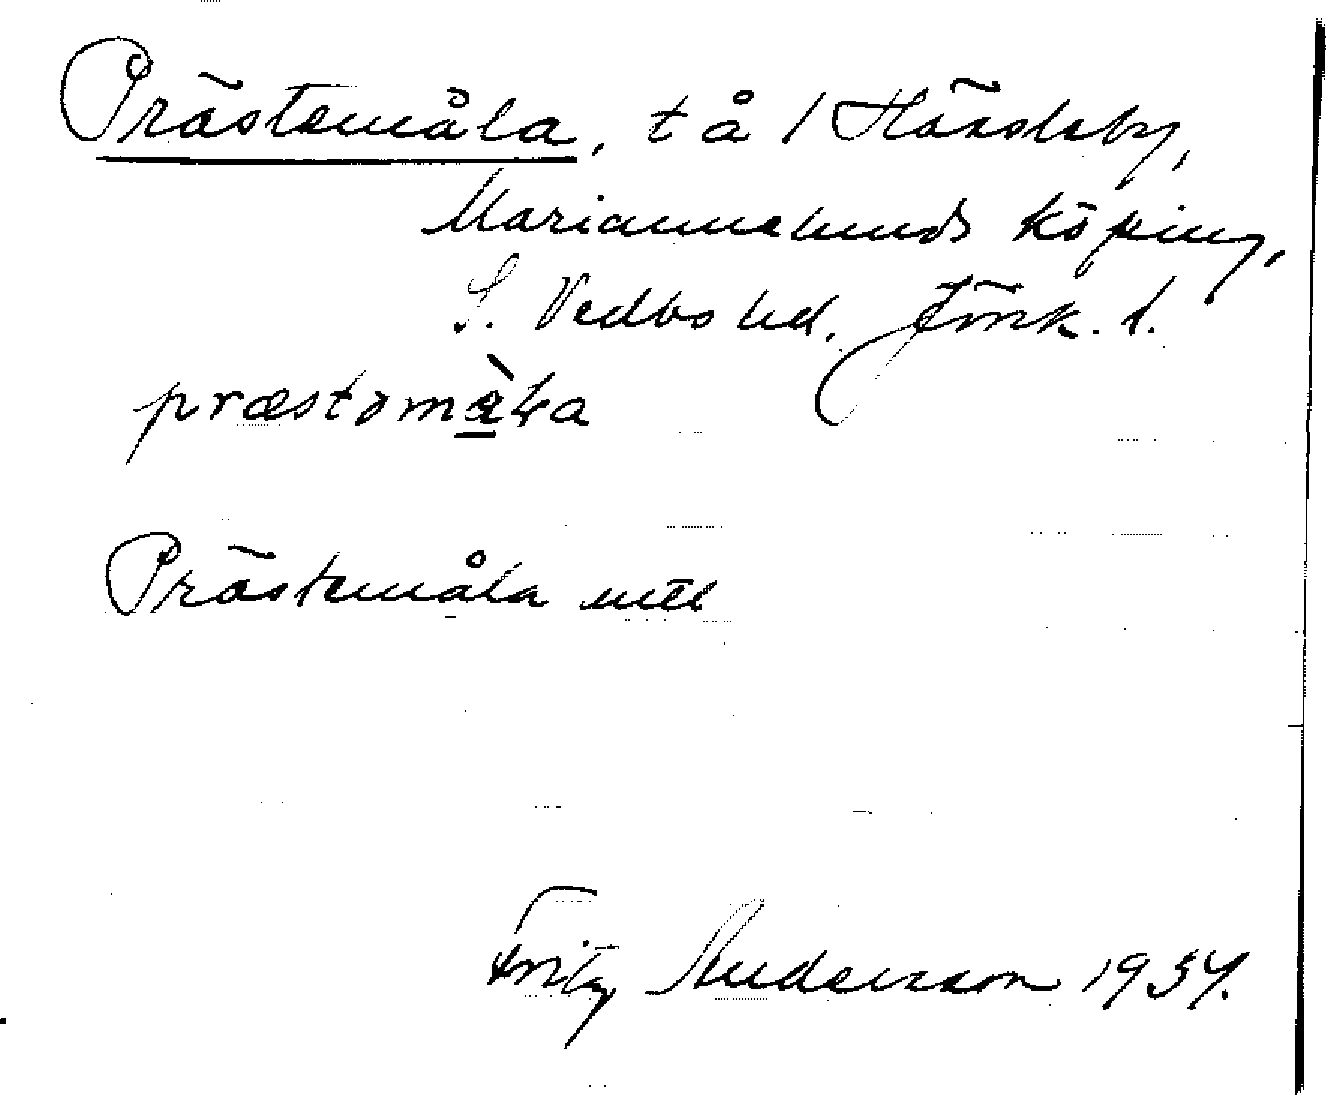 Prästemåla, t å 1 Hässleby,
Mariannelunds köping,
S. Vedbo hd. Jönk. l.
præstəmàla
Prästemåla mtl
Fritz Andersson 1934.